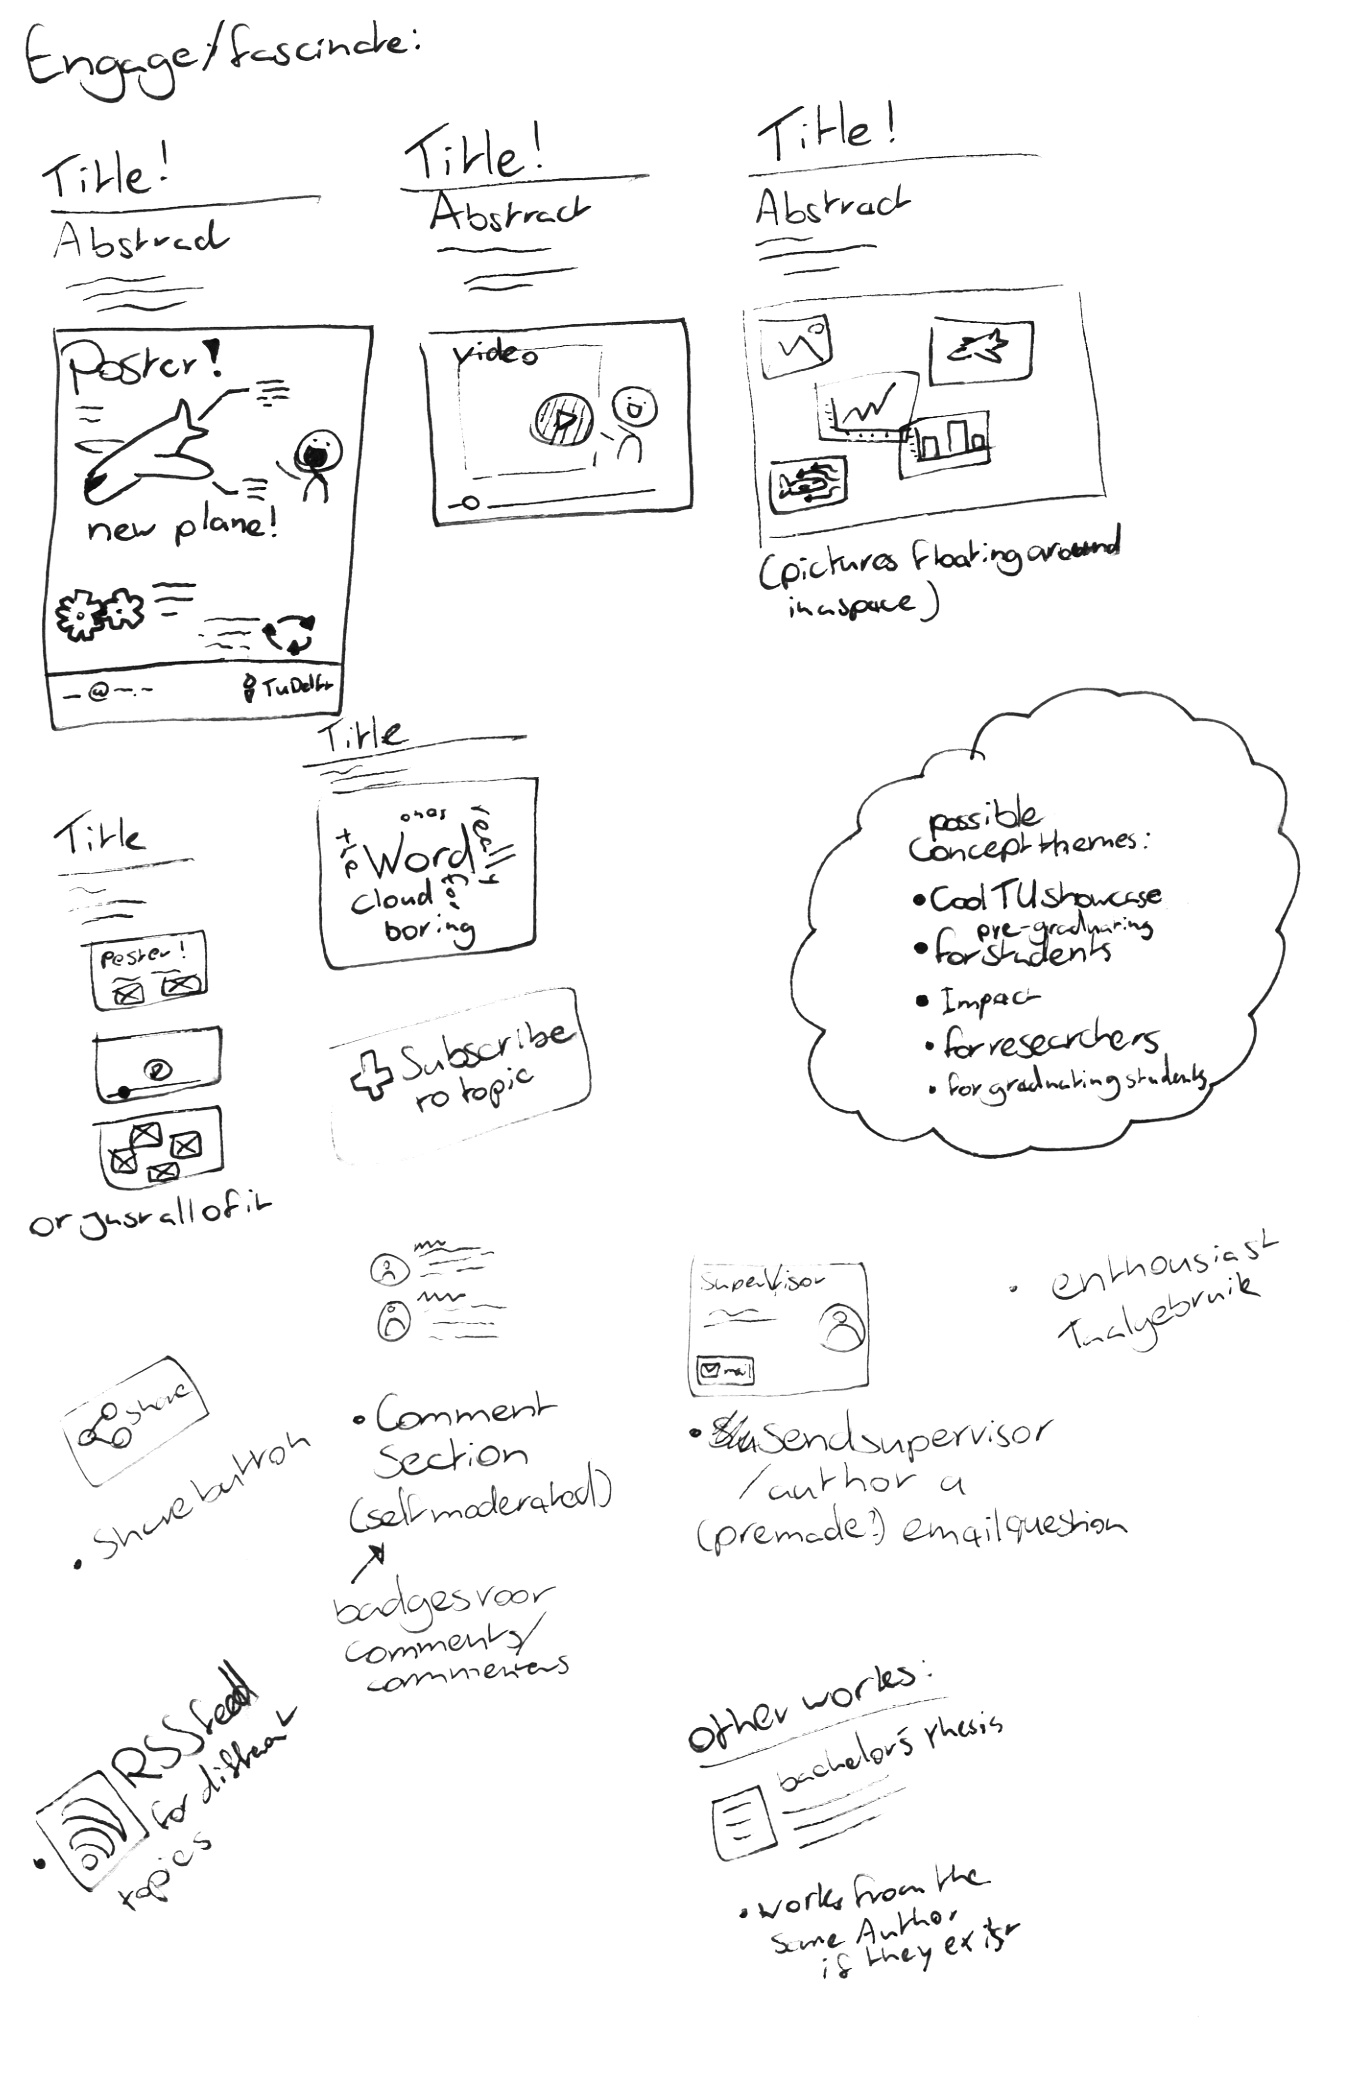 Engage/fascinate:
Title!
Abstract
Poster!
new plane!
@
TU Delft
Title!
Abstract
video
Title!
Abstract
(pictures floating around
in a space)
Title
Poster!
or just all of it
Title
Word
really
cloud
boring
Subscribe
to topic
possible
Concept themes:
• Cool TU showcase
pre-graduating
• for students
• Impact
• for researchers
• for graduating students
share
• Share button
• Comment
Section
(self moderated)
badges voor
comments/
commenters
Supervisor
mail
• Send supervisor
/author a
(premade?) email question
• enthousiast
Taalgebruik
• RSS feed
for different
topics
other works:
bachelor's thesis
• works from the
same Author
if they exist